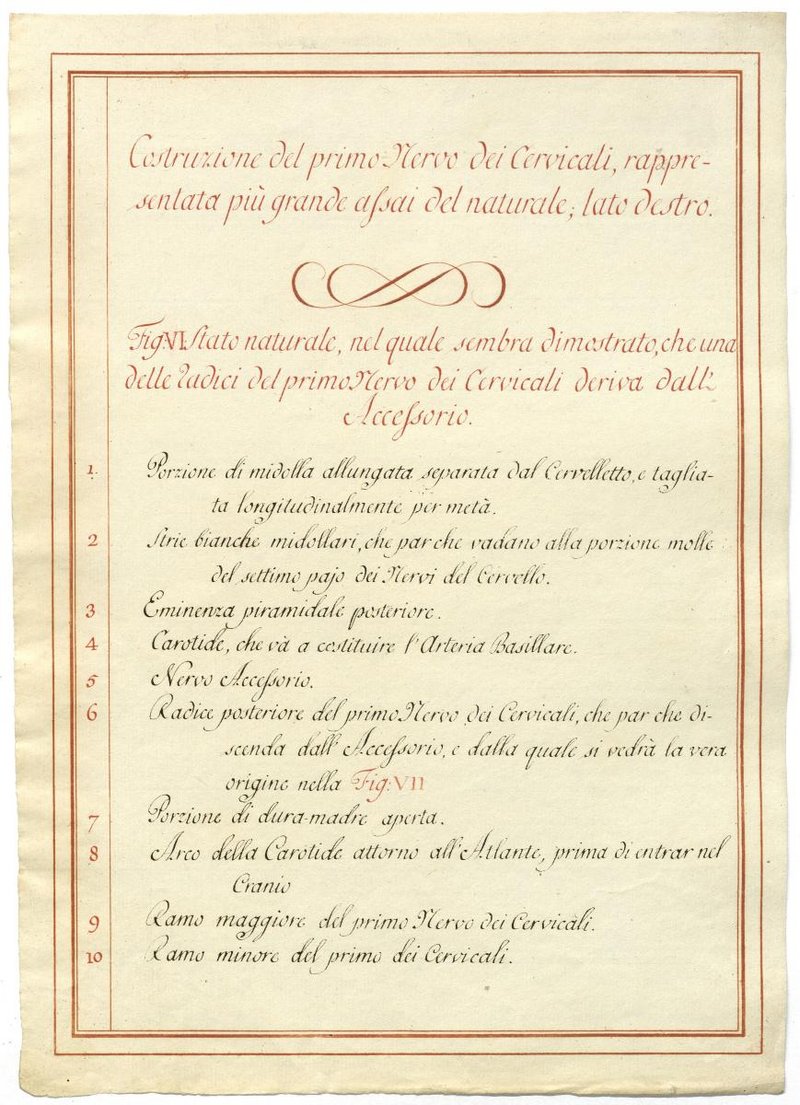 Costruzione del primo Nervo dei Cervicali, rappre-
sentata più grande assai del naturale; lato destro.
Fig: VI Stato naturale, nel quale sembra dimostrato, che una
delle radici del primo Nervo dei Cervicali deriva dall'
Accessorio.
1. Porzione di midolla allungata separata dal Cervelletto, e taglia-
ta longitudinalmente per metà.
2 Strie bianche midollari, che par che vadano alla porzione molle
del settimo pajo dei Nervi del Cervello.
3 Eminenza piramidale posteriore.
4 Carotide, che và a costituire l'Arteria Basillare.
5 Nervo Accessorio.
6 Radice posteriore del primo Nervo dei Cervicali, che par che di-
scenda dall'Accessorio, e dalla quale si vedrà la vera
origine nella Fig: VII
7 Porzione di dura-madre aperta.
8 Arco della Carotide attorno all'Atlante, prima di entrar nel
Cranio
9 Ramo maggiore del primo Nervo dei Cervicali.
10 Ramo minore del primo dei Cervicali.